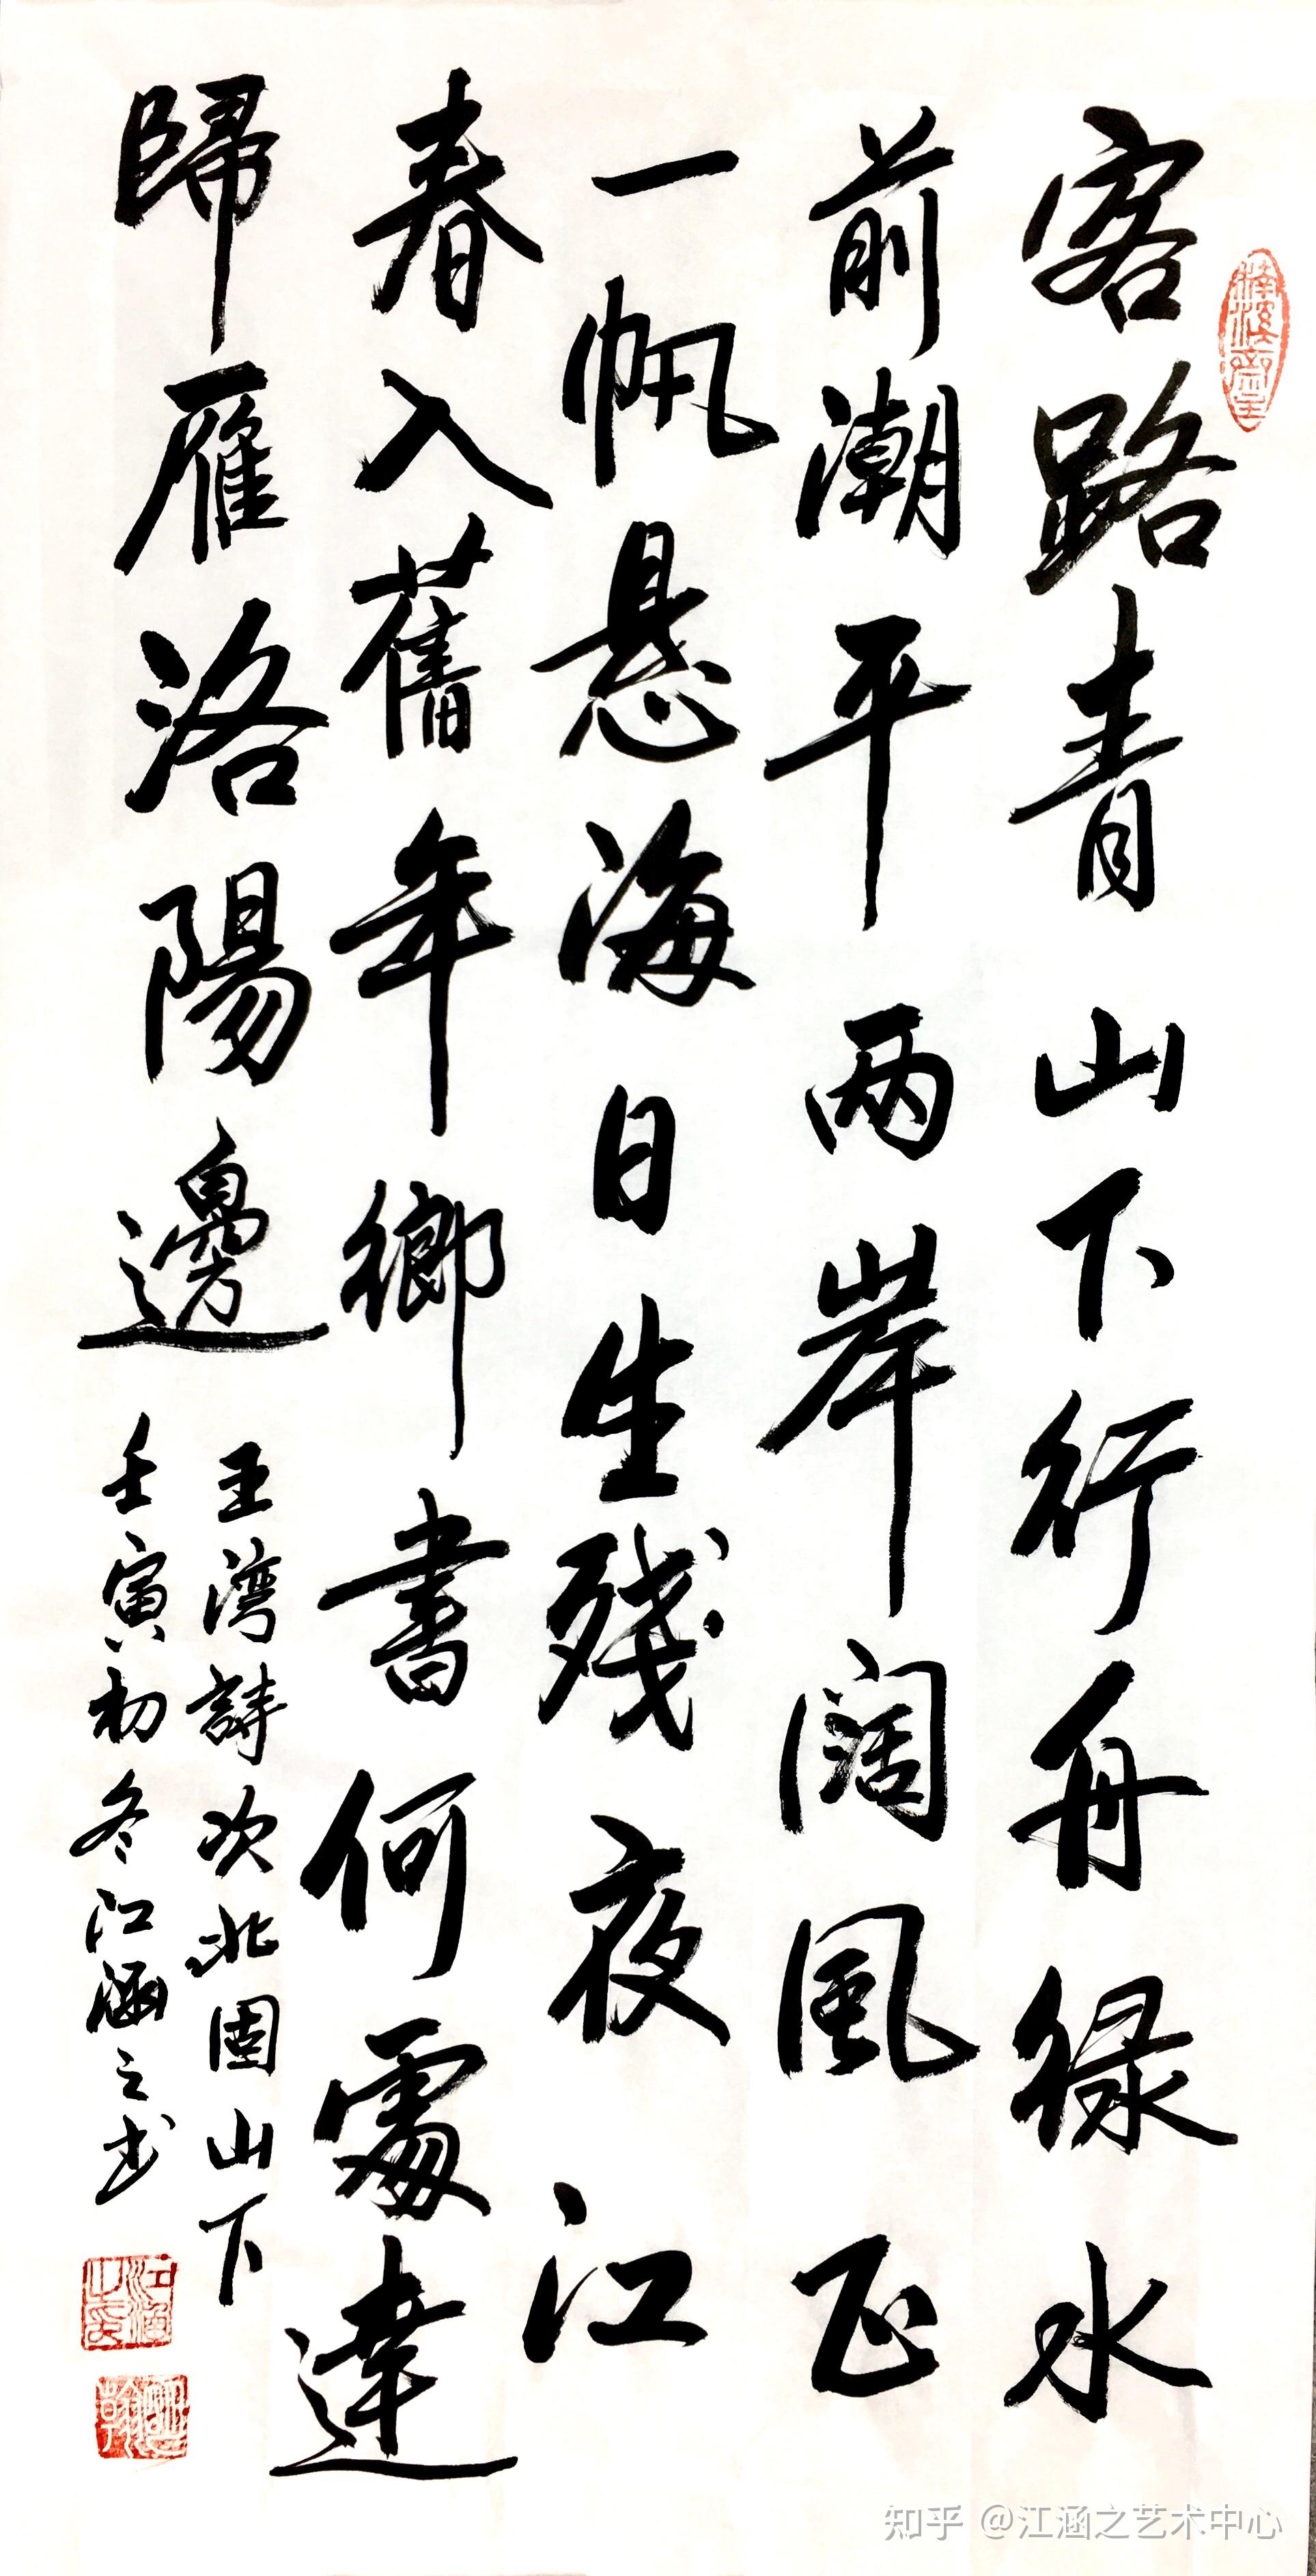 客路青山下行舟绿水
前潮平两岸阔風正
一帆悬海日生残夜江
春入舊年鄉書何處達
歸雁洛陽邊
王湾詩次北固山下
壬寅初冬江涵之书
江涵之印
知乎 @江涵之艺术中心